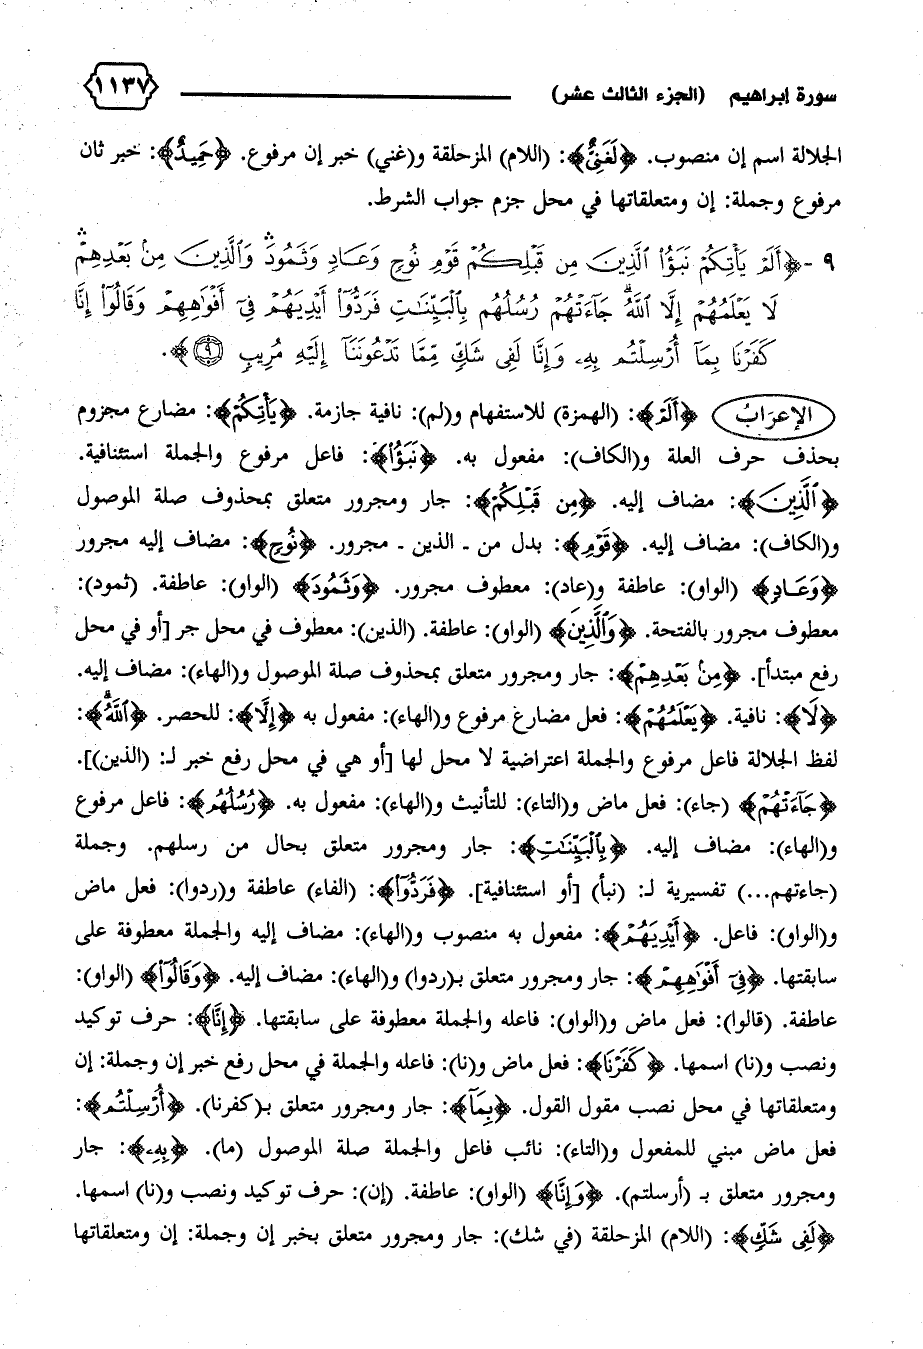 سورة إبراهيم (الجزء الثالث عشر) ١١٣٧
الجلالة اسم إن منصوب. ﴿لَغَنِيٌّ﴾: (اللام) المزحلقة و(غني) خبر إن مرفوع. ﴿حَمِيدٌ﴾: خبر ثان
مرفوع وجملة: إن ومتعلقاتها في محل جزم جواب الشرط.
٩ -﴿أَلَمْ يَأْتِكُمْ نَبَؤُا۟ ٱلَّذِينَ مِن قَبْلِكُمْ قَوْمِ نُوحٍ وَعَادٍ وَثَمُودَ ۛ وَٱلَّذِينَ مِنۢ بَعْدِهِمْ ۛ
لَا يَعْلَمُهُمْ إِلَّا ٱللَّهُ ۚ جَآءَتْهُمْ رُسُلُهُم بِٱلْبَيِّنَـٰتِ فَرَدُّوٓا۟ أَيْدِيَهُمْ فِىٓ أَفْوَٰهِهِمْ وَقَالُوٓا۟ إِنَّا
كَفَرْنَا بِمَآ أُرْسِلْتُم بِهِۦ وَإِنَّا لَفِى شَكٍّ مِّمَّا تَدْعُونَنَآ إِلَيْهِ مُرِيبٍ ۝٩﴾.
الإعرَابُ ﴿أَلَمْ﴾: (الهمزة) للاستفهام و(لم): نافية جازمة. ﴿يَأْتِكُمْ﴾: مضارع مجزوم
بحذف حرف العلة و(الكاف): مفعول به. ﴿نَبَؤُا۟﴾: فاعل مرفوع والجملة استئنافية.
﴿ٱلَّذِينَ﴾: مضاف إليه. ﴿مِن قَبْلِكُمْ﴾: جار ومجرور متعلق بمحذوف صلة الموصول
و(الكاف): مضاف إليه. ﴿قَوْمِ﴾: بدل من ـ الذين ـ مجرور. ﴿نُوحٍ﴾: مضاف إليه مجرور
﴿وَعَادٍ﴾ (الواو): عاطفة و(عاد): معطوف مجرور. ﴿وَثَمُودَ﴾ (الواو): عاطفة. (ثمود):
معطوف مجرور بالفتحة. ﴿وَٱلَّذِينَ﴾ (الواو): عاطفة. (الذين): معطوف في محل جر [أو في محل
رفع مبتدأ]. ﴿مِنۢ بَعْدِهِمْ﴾: جار ومجرور متعلق بمحذوف صلة الموصول و(الهاء): مضاف إليه.
﴿لَا﴾: نافية. ﴿يَعْلَمُهُمْ﴾: فعل مضارع مرفوع و(الهاء): مفعول به ﴿إِلَّا﴾: للحصر. ﴿ٱللَّهُ ۚ﴾:
لفظ الجلالة فاعل مرفوع والجملة اعتراضية لا محل لها [أو هي في محل رفع خبر لـ: (الذين)].
﴿جَآءَتْهُمْ﴾ (جاء): فعل ماض و(التاء): للتأنيث و(الهاء): مفعول به. ﴿رُسُلُهُم﴾: فاعل مرفوع
و(الهاء): مضاف إليه. ﴿بِٱلْبَيِّنَـٰتِ﴾: جار ومجرور متعلق بحال من رسلهم. وجملة
(جاءتهم...) تفسيرية لـ: (نبأ) [أو استئنافية]. ﴿فَرَدُّوٓا۟﴾: (الفاء) عاطفة و(ردوا): فعل ماض
و(الواو): فاعل. ﴿أَيْدِيَهُمْ﴾: مفعول به منصوب و(الهاء): مضاف إليه والجملة معطوفة على
سابقتها. ﴿فِىٓ أَفْوَٰهِهِمْ﴾: جار ومجرور متعلق بـ(ردوا) و(الهاء): مضاف إليه. ﴿وَقَالُوٓا۟﴾ (الواو):
عاطفة. (قالوا): فعل ماض و(الواو): فاعله والجملة معطوفة على سابقتها. ﴿إِنَّا﴾: حرف توكيد
ونصب و(نا) اسمها. ﴿كَفَرْنَا﴾: فعل ماض و(نا): فاعله والجملة في محل رفع خبر إن وجملة: إن
ومتعلقاتها في محل نصب مقول القول. ﴿بِمَآ﴾: جار ومجرور متعلق بـ(كفرنا). ﴿أُرْسِلْتُم﴾:
فعل ماض مبني للمفعول و(التاء): نائب فاعل والجملة صلة الموصول (ما). ﴿بِهِۦ﴾: جار
ومجرور متعلق بـ (أرسلتم). ﴿وَإِنَّا﴾ (الواو): عاطفة. (إن): حرف توكيد ونصب و(نا) اسمها.
﴿لَفِى شَكٍّ﴾: (اللام) المزحلقة (في شك): جار ومجرور متعلق بخبر إن وجملة: إن ومتعلقاتها